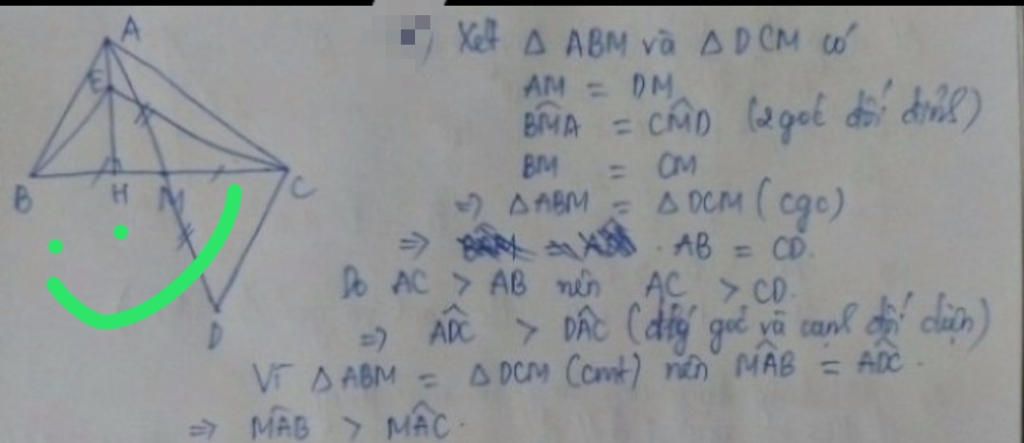 A
E
B
H
M
C
D
) Xét Δ ABM và Δ DCM có
AM = DM
BM̂A = CM̂D (2 góc đối đỉnh)
BM = CM
=> Δ ABM = Δ DCM (cgc)
=> AB = CD.
Do AC > AB nên AC > CD.
=> AD̂C > DÂC (đlý góc và cạnh đối diện)
Vì Δ ABM = Δ DCM (cmt) nên MÂB = AD̂C.
=> MÂB > MÂC.